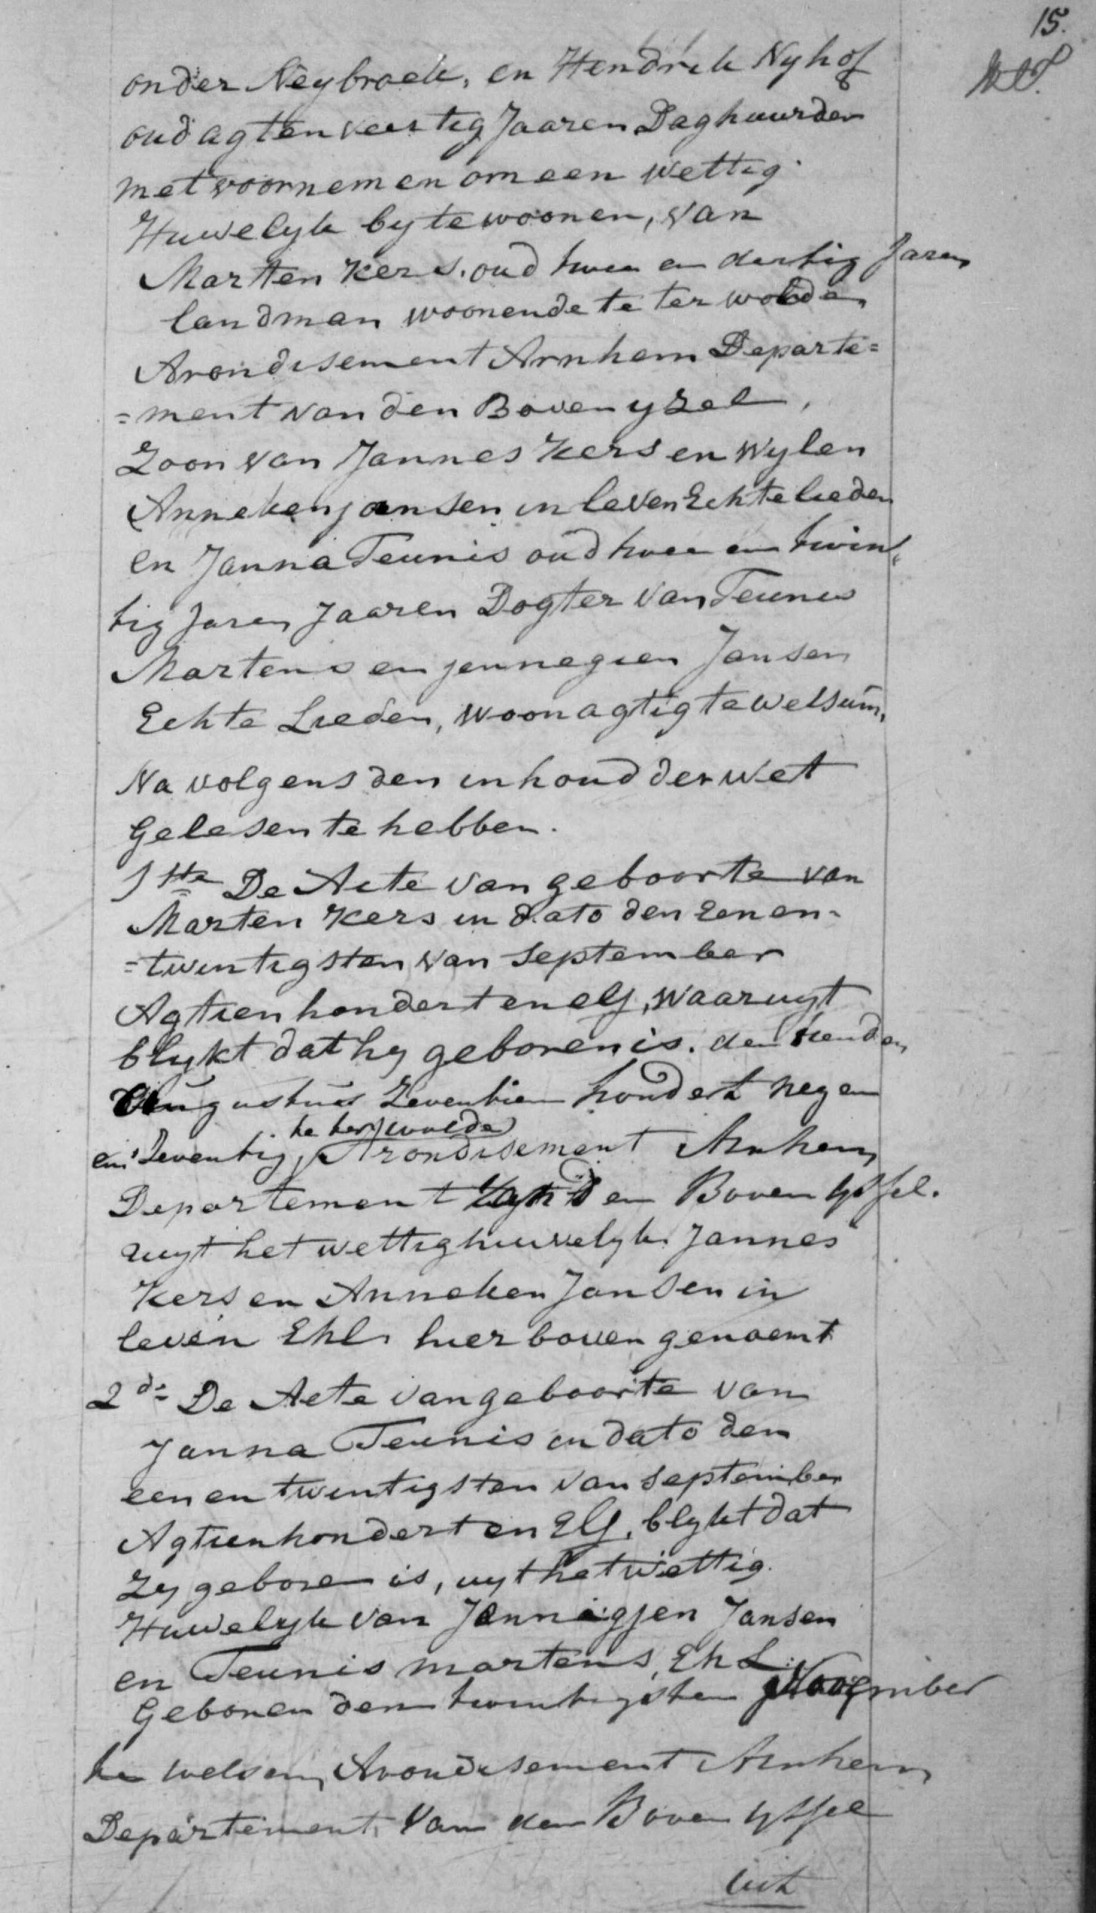 15.
onder Neybroek, en Hendrik Nyhof
oud agt en veertig Jaaren Daghuurder
met voornemen om een wettig
Huwelyk by te woonen, van
Marten Kers. oud twee en dertig Jaren
landman woonende te ter wolde
Arondisement Arnhem Departe=
=ment van den Boven yzel,
Zoon van Jannes Kers en wylen
Anneken jansen in leven Echtelieden
en Janna Teunis oud twee en twin
tig Jaren Jaaren Dogter van Teunis
Martens en jennegien Jansen
Echte Lieden, woonagtig te Welsum,
Na volgens den inhoud der wet
Gelesen te hebben.
1ste De Acte van geboorte van
Marten Kers in dato den eenen-
=twintigsten van september
Agtien hondert en elf, waaruyt
blykt dat hy geboren is. den tienden
Augustus Zeventien hondert negen
te ter wolde
en Zeventig, Arondisement Arnhem
Departement van den Boven Yssel.
uuyt het wettig huwelyk Jannes
Kers en Anneken Jansen in
leven Ehl hier boven genoemt
2de De Acte van geboorte van
Janna Teunis in dato den
een en twintigsten van september
Agtienhondert en Elf, blykt dat
Zy gebore is, uyt het wettig
Huwelyk van Jannigjen Jansen
en Teunis martens, Ehl
Geboren den twintigsten November
te welsem, Arondisement Arnhem
Departement Van den Boven Yssel
uit